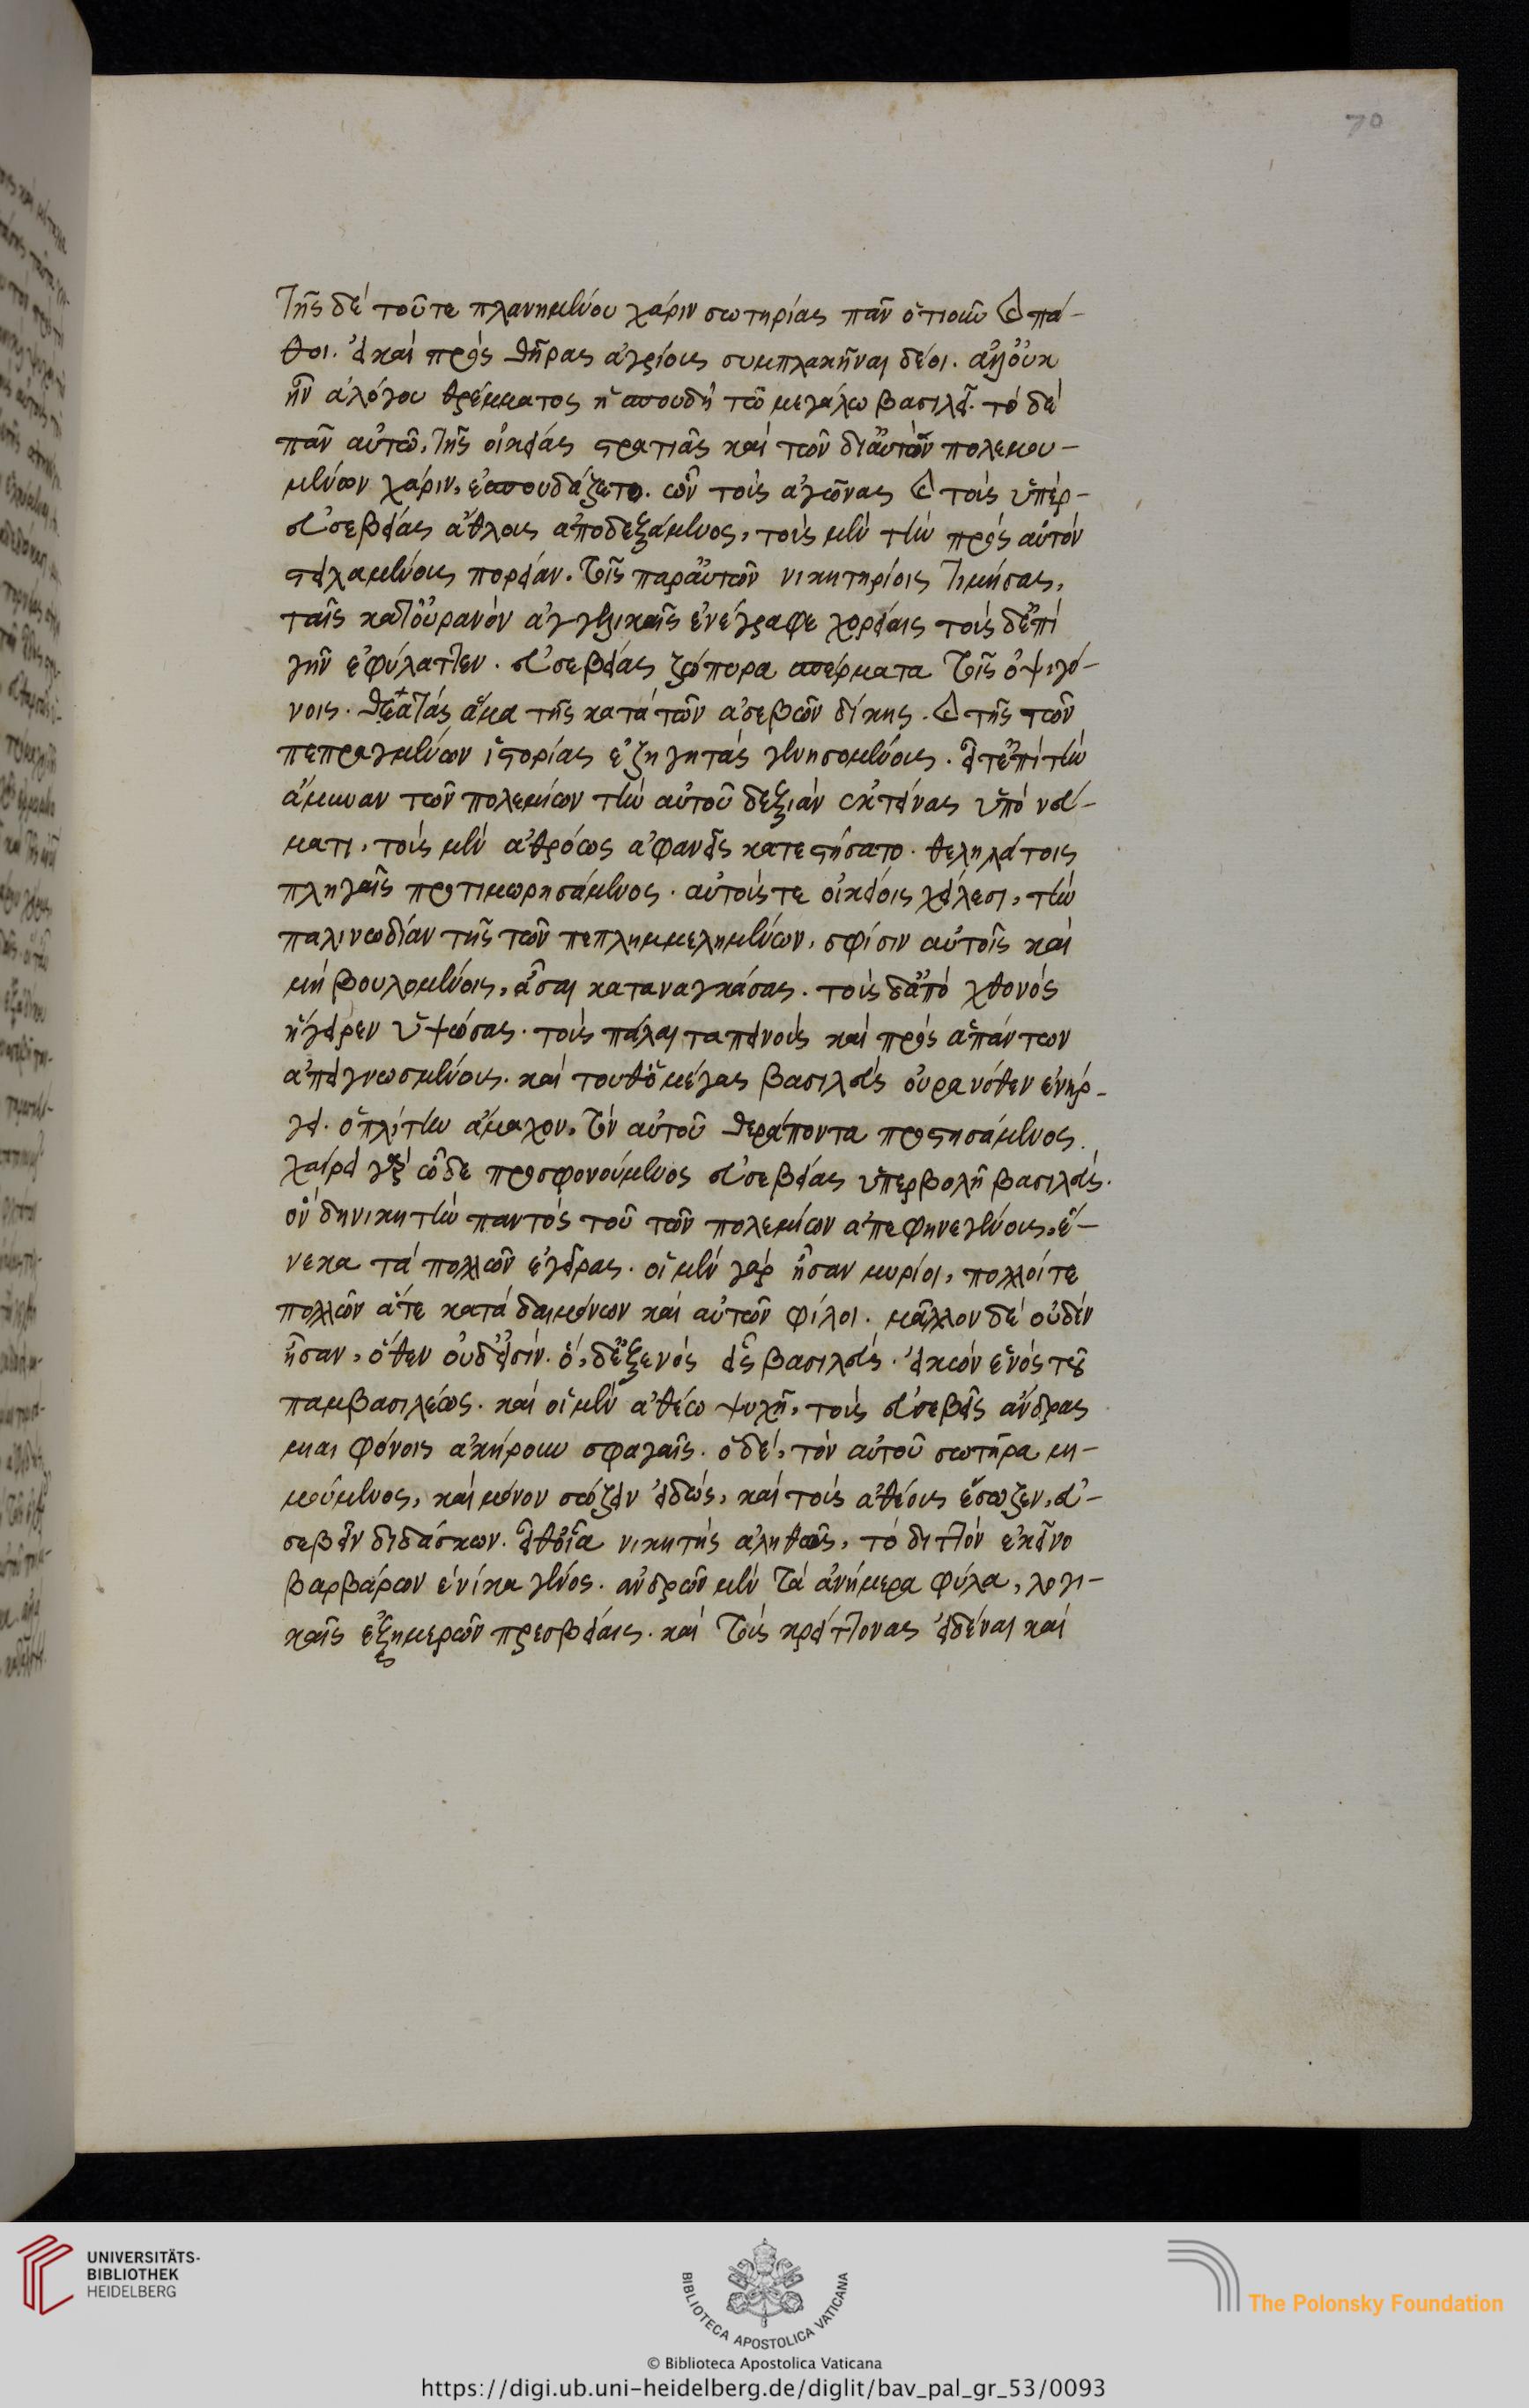 70
τῆς δὲ τοῦτε πλανημένου χάριν σωτηρίας πᾶν ὁτιοῦν καὶ πά-
θοι. εἰ καὶ πρὸς θῆρας ἀγρίους συμπλακῆναι δέοι. ἀλλ' οὐκ
ἦν ἀλόγου θρέμματος ἡ σπουδὴ τῶ μεγάλω βασιλεῖ. τὸ δὲ
πᾶν αὐτῶ, τῆς οἰκείας στρατιᾶς καὶ τῶν δι' αὐτῶν πολεμου-
μένων χάριν, ἐσπουδάζετο. ὧν τοὺς ἀγῶνας καὶ τοὺς ὑπὲρ
εὐσεβείας ἄθλους ἀποδεξάμενος, τοὺς μὲν τὴν πρὸς αὐτὸν
στειλαμένους πορείαν. τοῖς παρ' αὐτῶν νικητηρίοις τιμήσας,
ταῖς κατ' οὐρανὸν ἀγγελικαῖς ἐνέγραφε χορείαις τοὺς δ' ἐπὶ
γῆν ἐφύλαττεν. εὐσεβείας ζώπυρα σπέρματα τοῖς ὀψιγό-
νοις. θεατὰς ἅμα τῆς κατὰ τῶν ἀσεβῶν δίκης. καὶ τῆς τῶν
πεπραγμένων ἱστορίας ἐξηγητὰς γενησομένους. εἶτ' ἐπὶ τὴν
ἄμυναν τῶν πολεμίων τὴν αὐτοῦ δεξιὰν ἐκτείνας ὑπὸ νεύ-
ματι, τοὺς μὲν ἀθρόως ἀφανεῖς κατεστήσατο. θεηλάτοις
πληγαῖς προτιμωρησάμενος. αὐτοῖς τε οἰκείοις χείλεσι, τὴν
παλινωδίαν τῆς τῶν πεπλημμελημένων, σφίσιν αὐτοῖς καὶ
μὴ βουλομένοις, ᾆσαι καταναγκάσας. τοὺς δ' ἀπὸ χθονὸς
ἤγειρεν ὑψώσας. τοὺς πάλαι ταπεινοὺς καὶ πρὸς ἁπάντων
ἀπεγνωσμένους. καὶ τοῦθ' ὁ μέγας βασιλεὺς οὐρανόθεν ἐνήρ-
γει. ὁπλίτην ἄμαχον, τὸν αὐτοῦ θεράποντα προστησάμενος.
χαίρει γὰρ ὧδε προσφωνούμενος εὐσεβείας ὑπερβολῆ βασιλεύς.
ὃν δὴ νικητὴν παντὸς τοῦ τῶν πολεμίων ἀπέφηνε γένους, ἕ-
νεκα τὰ πολλῶν ἐγείρας. οἱ μὲν γὰρ ἦσαν μυρίοι, πολλοί τε
πολλῶν ἅτε κατὰ δαιμόνων καὶ αὐτῶν φίλοι. μᾶλλον δὲ οὐδὲν
ἦσαν, ὅθεν οὐδ' εἰσίν. ὁ, δ' ἐξ ἑνὸς εἷς βασιλεύς. εἰκὼν ἑνὸς τοῦ
παμβασιλέως. καὶ οἱ μὲν ἀθέω ψυχῆ, τοὺς εὐσεβεῖς ἄνδρας
μιαιφόνοις ἀνήρουν σφαγαῖς. ὁ δέ, τὸν αὐτοῦ σωτῆρα μι-
μούμενος, καὶ μόνον σώζειν εἰδώς, καὶ τοὺς ἀθέους ἔσωζεν, εὐ-
σεβεῖν διδάσκων. εἶθ' οἷα νικητὴς ἀληθῶς, τὸ διττὸν ἐκεῖνο
βαρβάρων ἐνίκα γένος. ἀνδρῶν μὲν τὰ ἀνήμερα φύλα, λογι-
καῖς ἐξημερῶν πρεσβείαις. καὶ τοὺς κρείττονας εἰδέναι καὶ
UNIVERSITÄTS-
BIBLIOTHEK
HEIDELBERG
BIBLIOTECA APOSTOLICA VATICANA
The Polonsky Foundation
© Biblioteca Apostolica Vaticana
https://digi.ub.uni-heidelberg.de/diglit/bav_pal_gr_53/0093